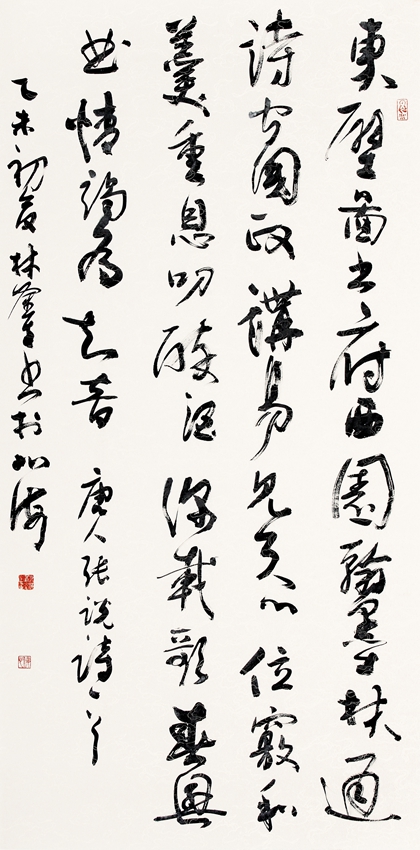 東壁圖书府西園翰墨林通
詩闻國政講易見天心位竊和
羹重恩叨醉酒深載歌春興
曲情竭為知音 唐人張説詩一首
乙未初夏林书於北海